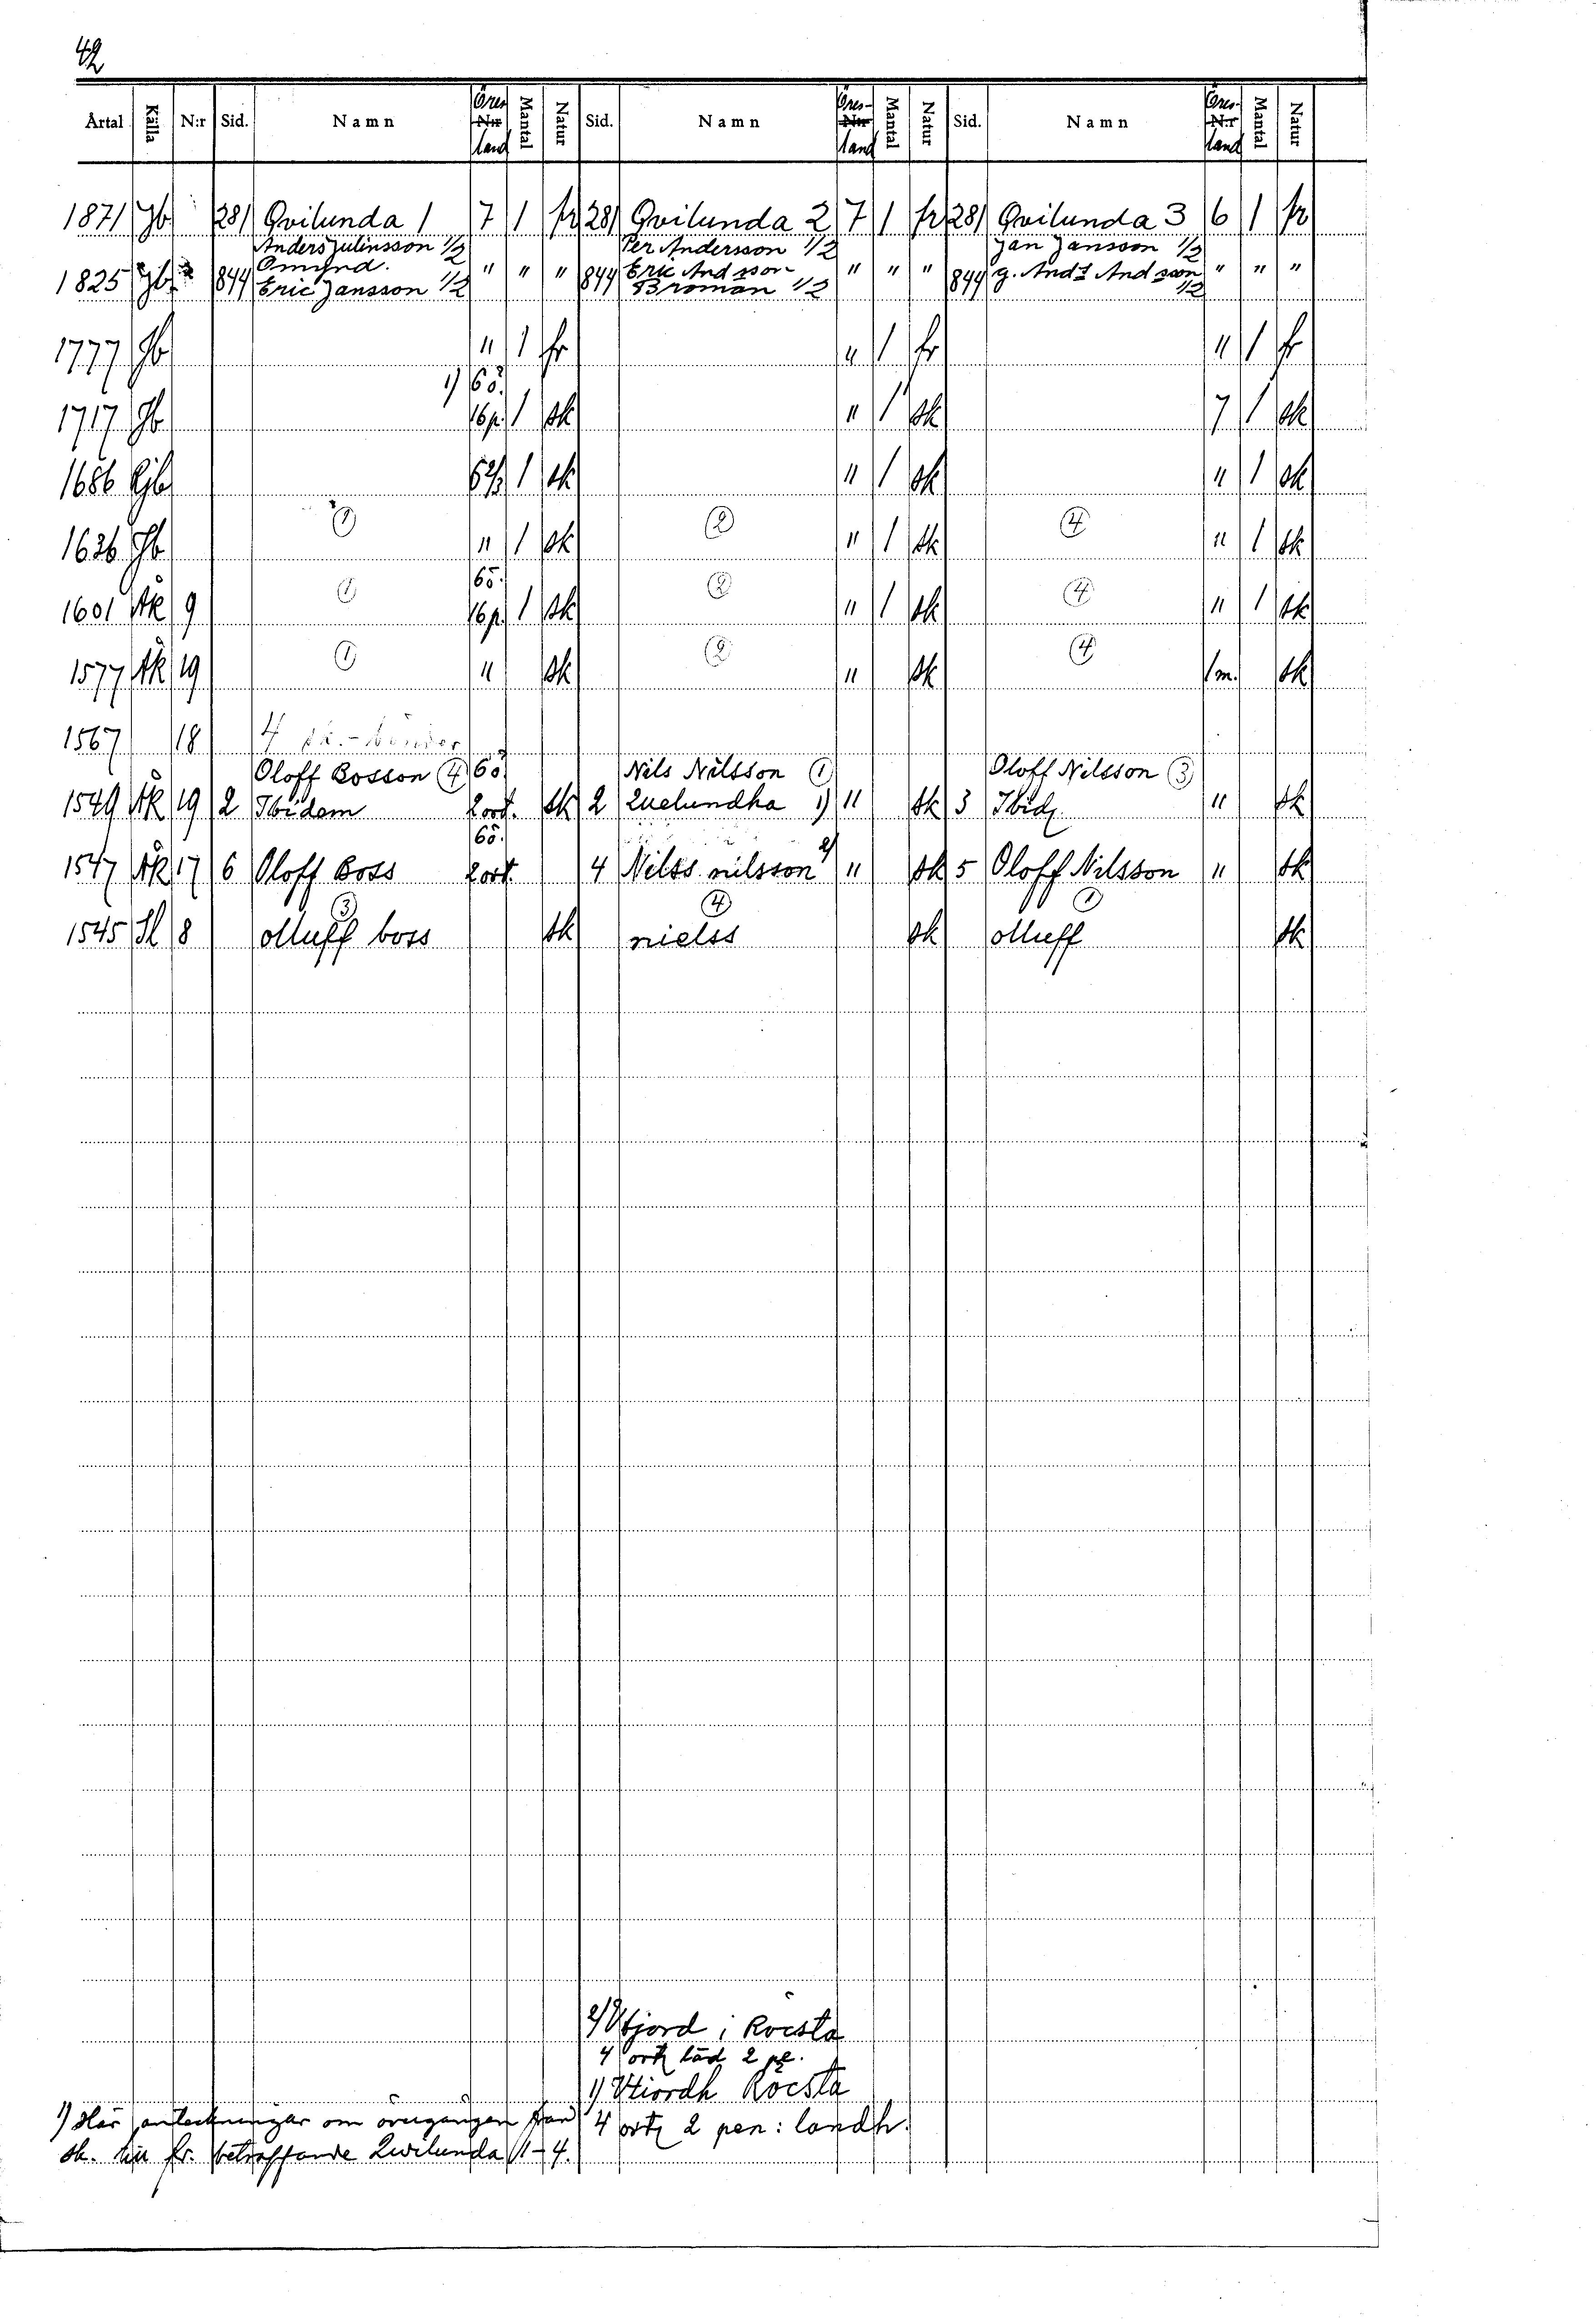 42
Årtal Källa N:r Sid. Namn Öres- N:r land Mantal Natur Sid. Namn Öres- N:r land Mantal Natur Sid. Namn Öres- N:r land Mantal Natur
1871 Jb 281 Qvilunda 1 7 1 fr 281 Qvilunda 2 7 1 fr 281 Qvilunda 3 6 1 fr
Anders Julinsson 1/2 Per Andersson 1/2 Jan Jansson 1/2
1825 Jb 844 Omynd. " " " 844 Eric Andsson " " " 844 g. Ands Andsson " " "
Eric Jansson 1/2 Broman 1/2 1/2
1777 Jb " 1 fr " 1 fr " 1 fr
1) 6ö.
1717 Jb 16p. 1 sk " 1 sk 7 1 sk
1686 Kjb 6 2/3 1 sk " 1 sk " 1 sk
1636 Jb (1) " 1 sk (2) " 1 sk (4) " 1 sk
6ö.
1601 ÄK 9 (1) 16p. 1 sk (2) " 1 sk (4) " 1 sk
1577 ÄK 19 (1) " sk (2) " sk (4) 1m. sk
1567 18 4 sk.-bönder
Oloff Bosson (4) 6ö. Nils Nilsson (1) Oloff Nilsson (3)
1549 ÄK 19 2 Ibidem 2 ort. sk 2 Quelundha 1) " sk 3 Ibid " sk
6ö.
1547 ÄK 17 6 Oloff Boss 2 ort. 4 Nilss nilsson 2) " sk 5 Oloff Nilsson " sk
(3) (4) (1)
1545 Sl 8 olluff boss sk nielss sk olluff sk
2) Vtjord i Rocsta
4 ort läd 2 pe.
1) Vtiordh Rocsta
4 ort 2 pen: landh.
1) Här anteckningar om övergången från
sk. till fr. beträffande Qwilunda 1-4.